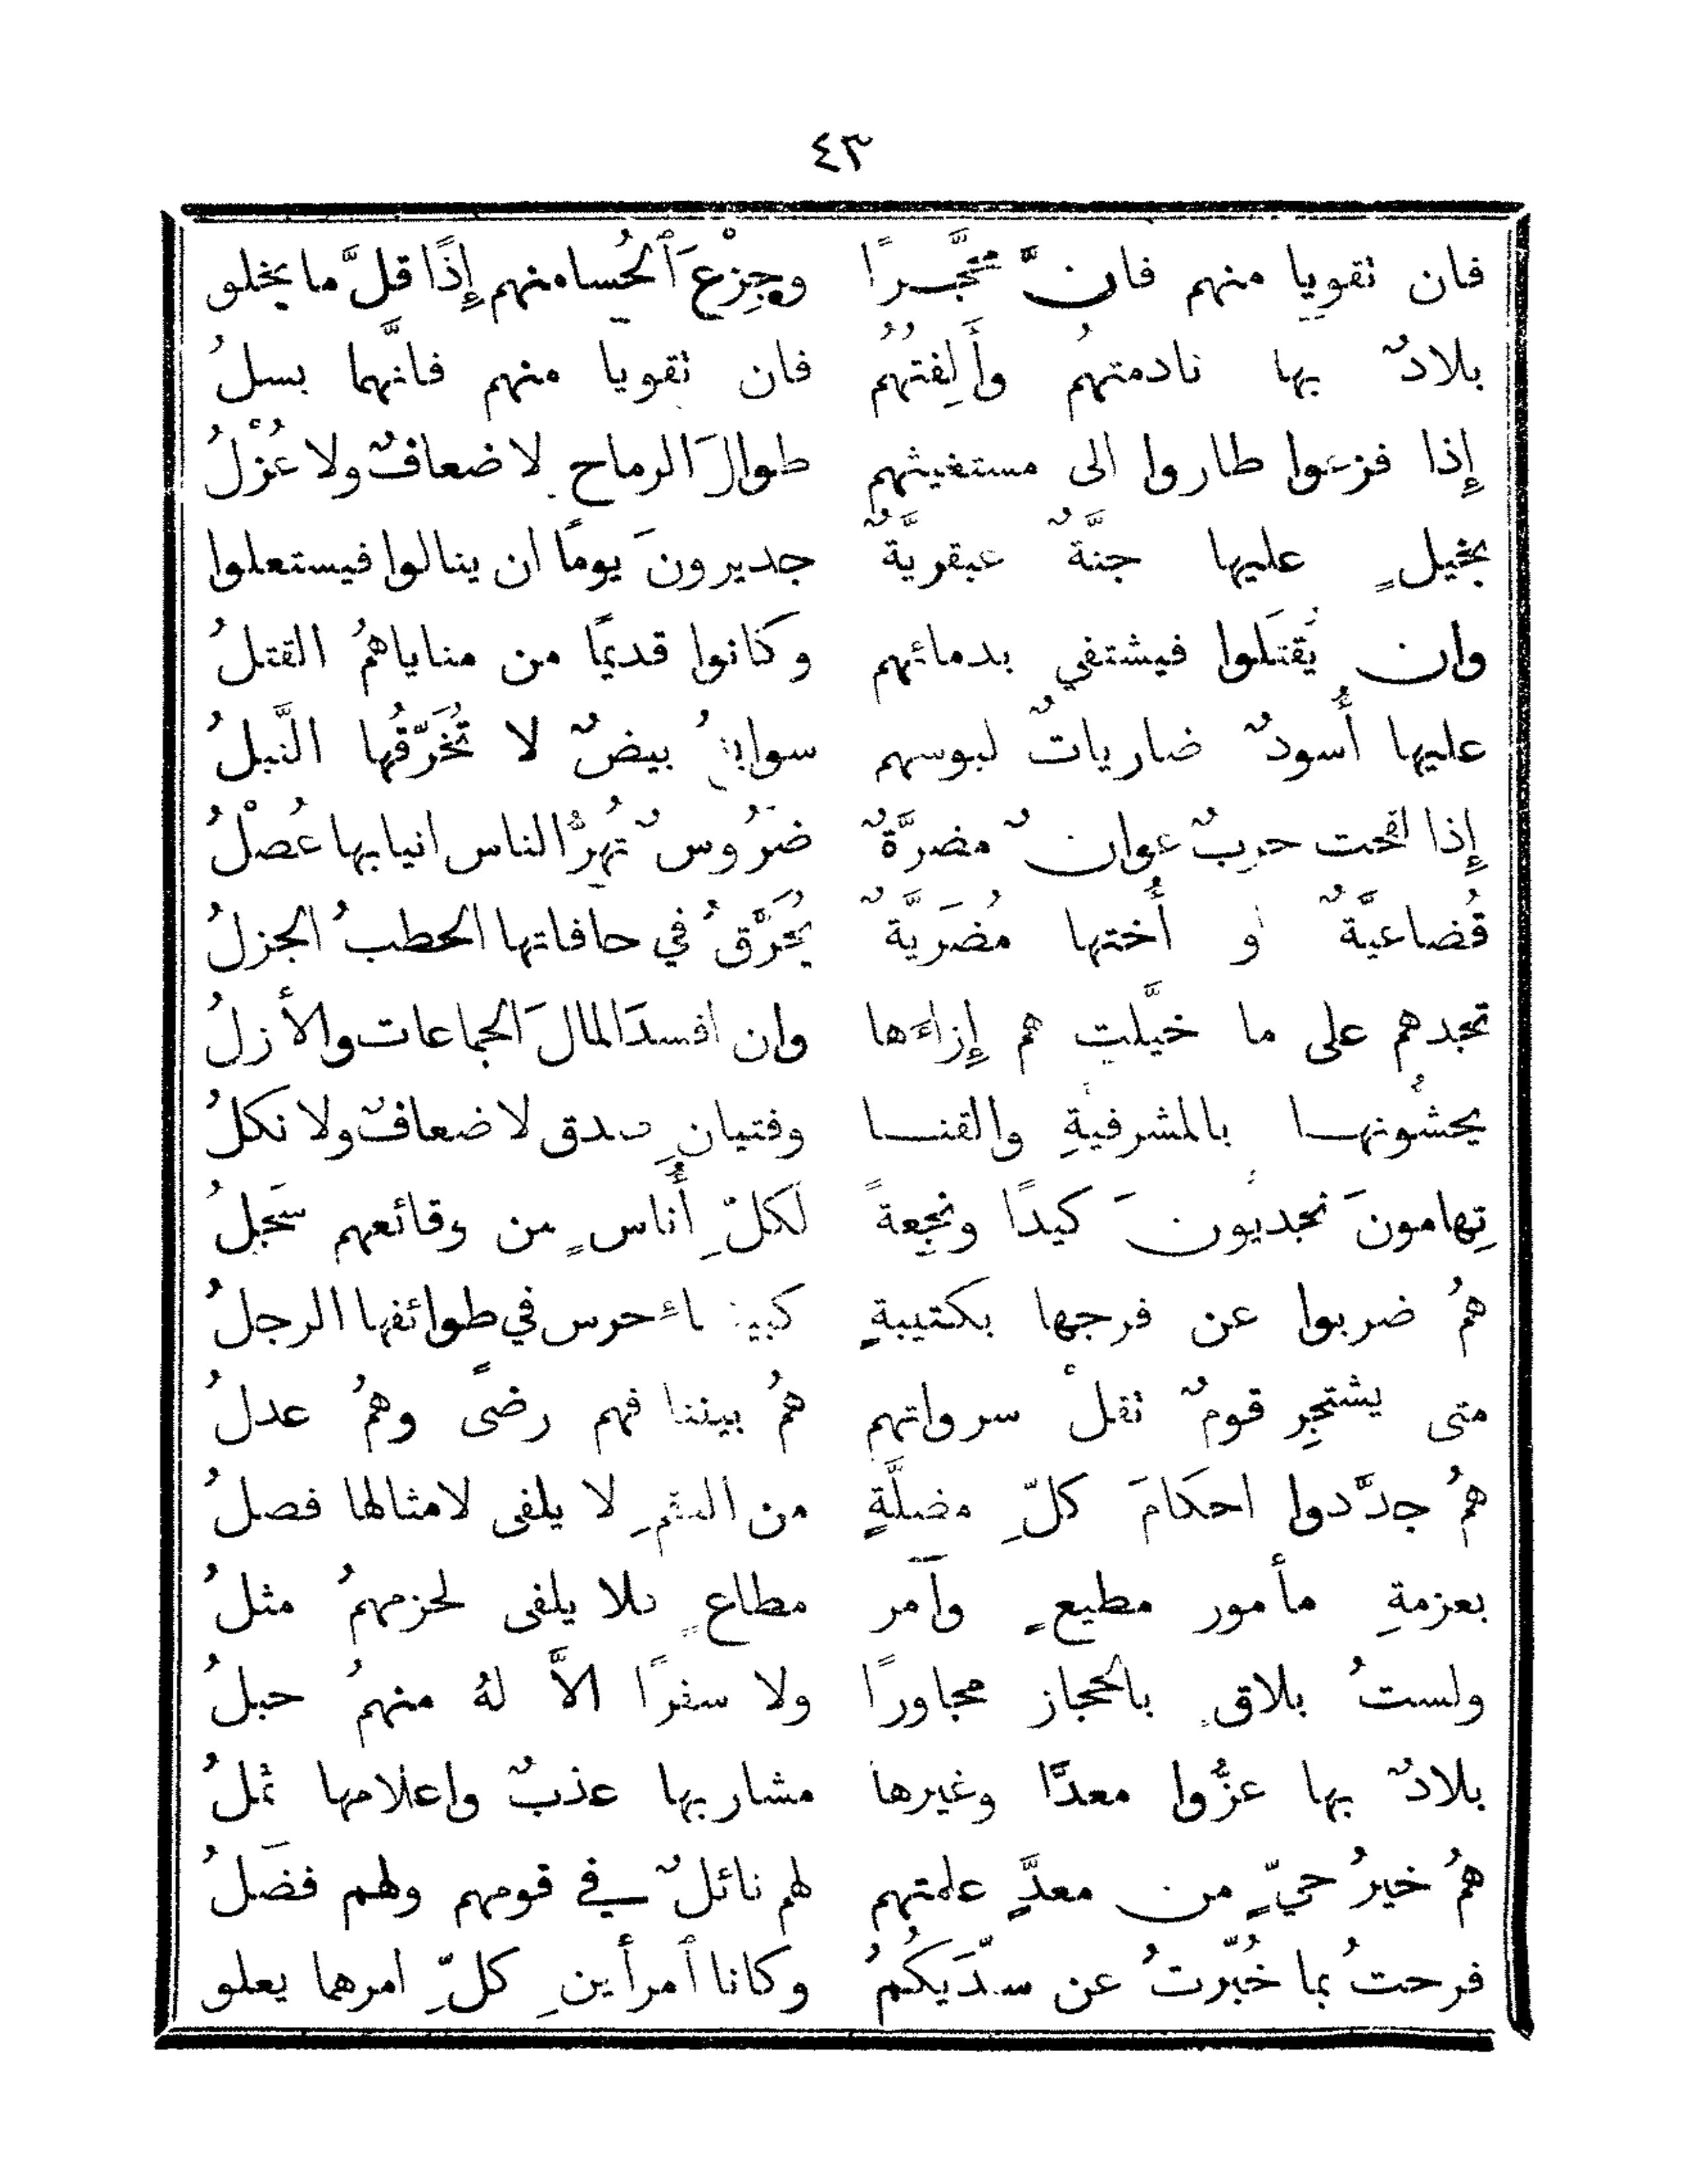 ٤٣
فان تقويا منهم فانَّ محجَّرًا وجِزْعَ ٱلحُسا منهم إِذًا قلَّ ما يخلو
بلادٌ بها نادمتهمُ وأَلِفتُهُمُ فان تقويا منهم فانَّهما بسلُ
إِذا فزعوا طاروا الى مستغيثهم طوالَ الرماح لا ضعافٌ ولا عُزْلُ
بخيلٍ عليها جنَّةٌ عبقريَّةٌ جديرون يومًا ان ينالوا فيستعلوا
وان يُقتَلوا فيشتفي بدمائهم وكانوا قديمًا من مناياهمُ القتلُ
عليها أُسودٌ ضارياتٌ لبوسهم سوابغُ بيضٌ لا تُخَرَّقُها النَّبلُ
إِذا لقحت حربٌ عوانٌ مضرَّةٌ ضَرُوسٌ تُهِرُّ الناس انيابها عُصْلُ
قُضاعيَّةٌ او أُختها مُضَريَّةٌ يُحَرَّقُ في حافاتها الحطبُ الجزلُ
تجدهم على ما خيَّلت هم إِزاءَها وان افسدَ المالَ الجماعات والأَزلُ
يحشُّونهـا بالمشرفيةِ والقنـا وفتيانِ صدق لا ضعافٌ ولا نكلُ
تِهامونَ نجديونَ كيدًا ونجعةً لكلِّ أُناسٍ من وقائعهم سَجلُ
همُ ضربوا عن فرجها بكتيبةٍ كبيضاء حرس في طوائفها الرجلُ
متى يشتجِر قومٌ تقلْ سرواتهم همُ بيننا فهم رضىً وهمُ عدلُ
همُ جدَّدوا احكامَ كلِّ مضلَّةٍ من العقمِ لا يلفى لامثالها فصلُ
بعزمةِ مأمور مطيعٍ وآمر مطاعٍ فلا يلفى لحزمهمُ مثلُ
ولستُ بلاقٍ بالحجاز مجاورًا ولا سفرًا الاَّ لهُ منهمُ حبلُ
بلادٌ بها عزُّوا معدًّا وغيرها مشاربها عذبٌ واعلامها ثملُ
همُ خيرُ حيٍّ من معدٍّ علمتهم لهم نائلٌ في قومهم ولهم فضلُ
فرحتُ بما خُبِّرتُ عن سيِّدَيكُمُ وكانا ٱمرأَينِ كلِّ امرهما يعلو